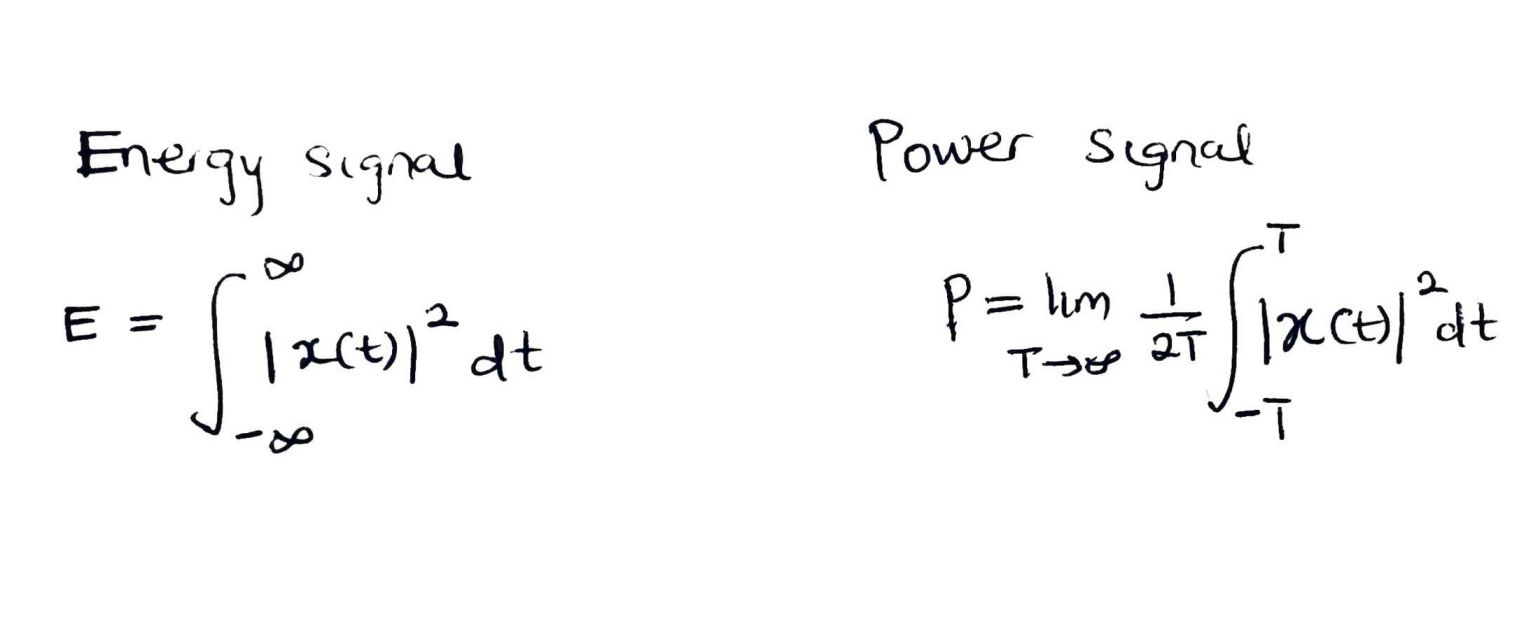 Energy signal
E = ∫_{-∞}^{∞} |x(t)|² dt
Power signal
P = lim_{T→∞} 1/2T ∫_{-T}^{T} |x(t)|² dt